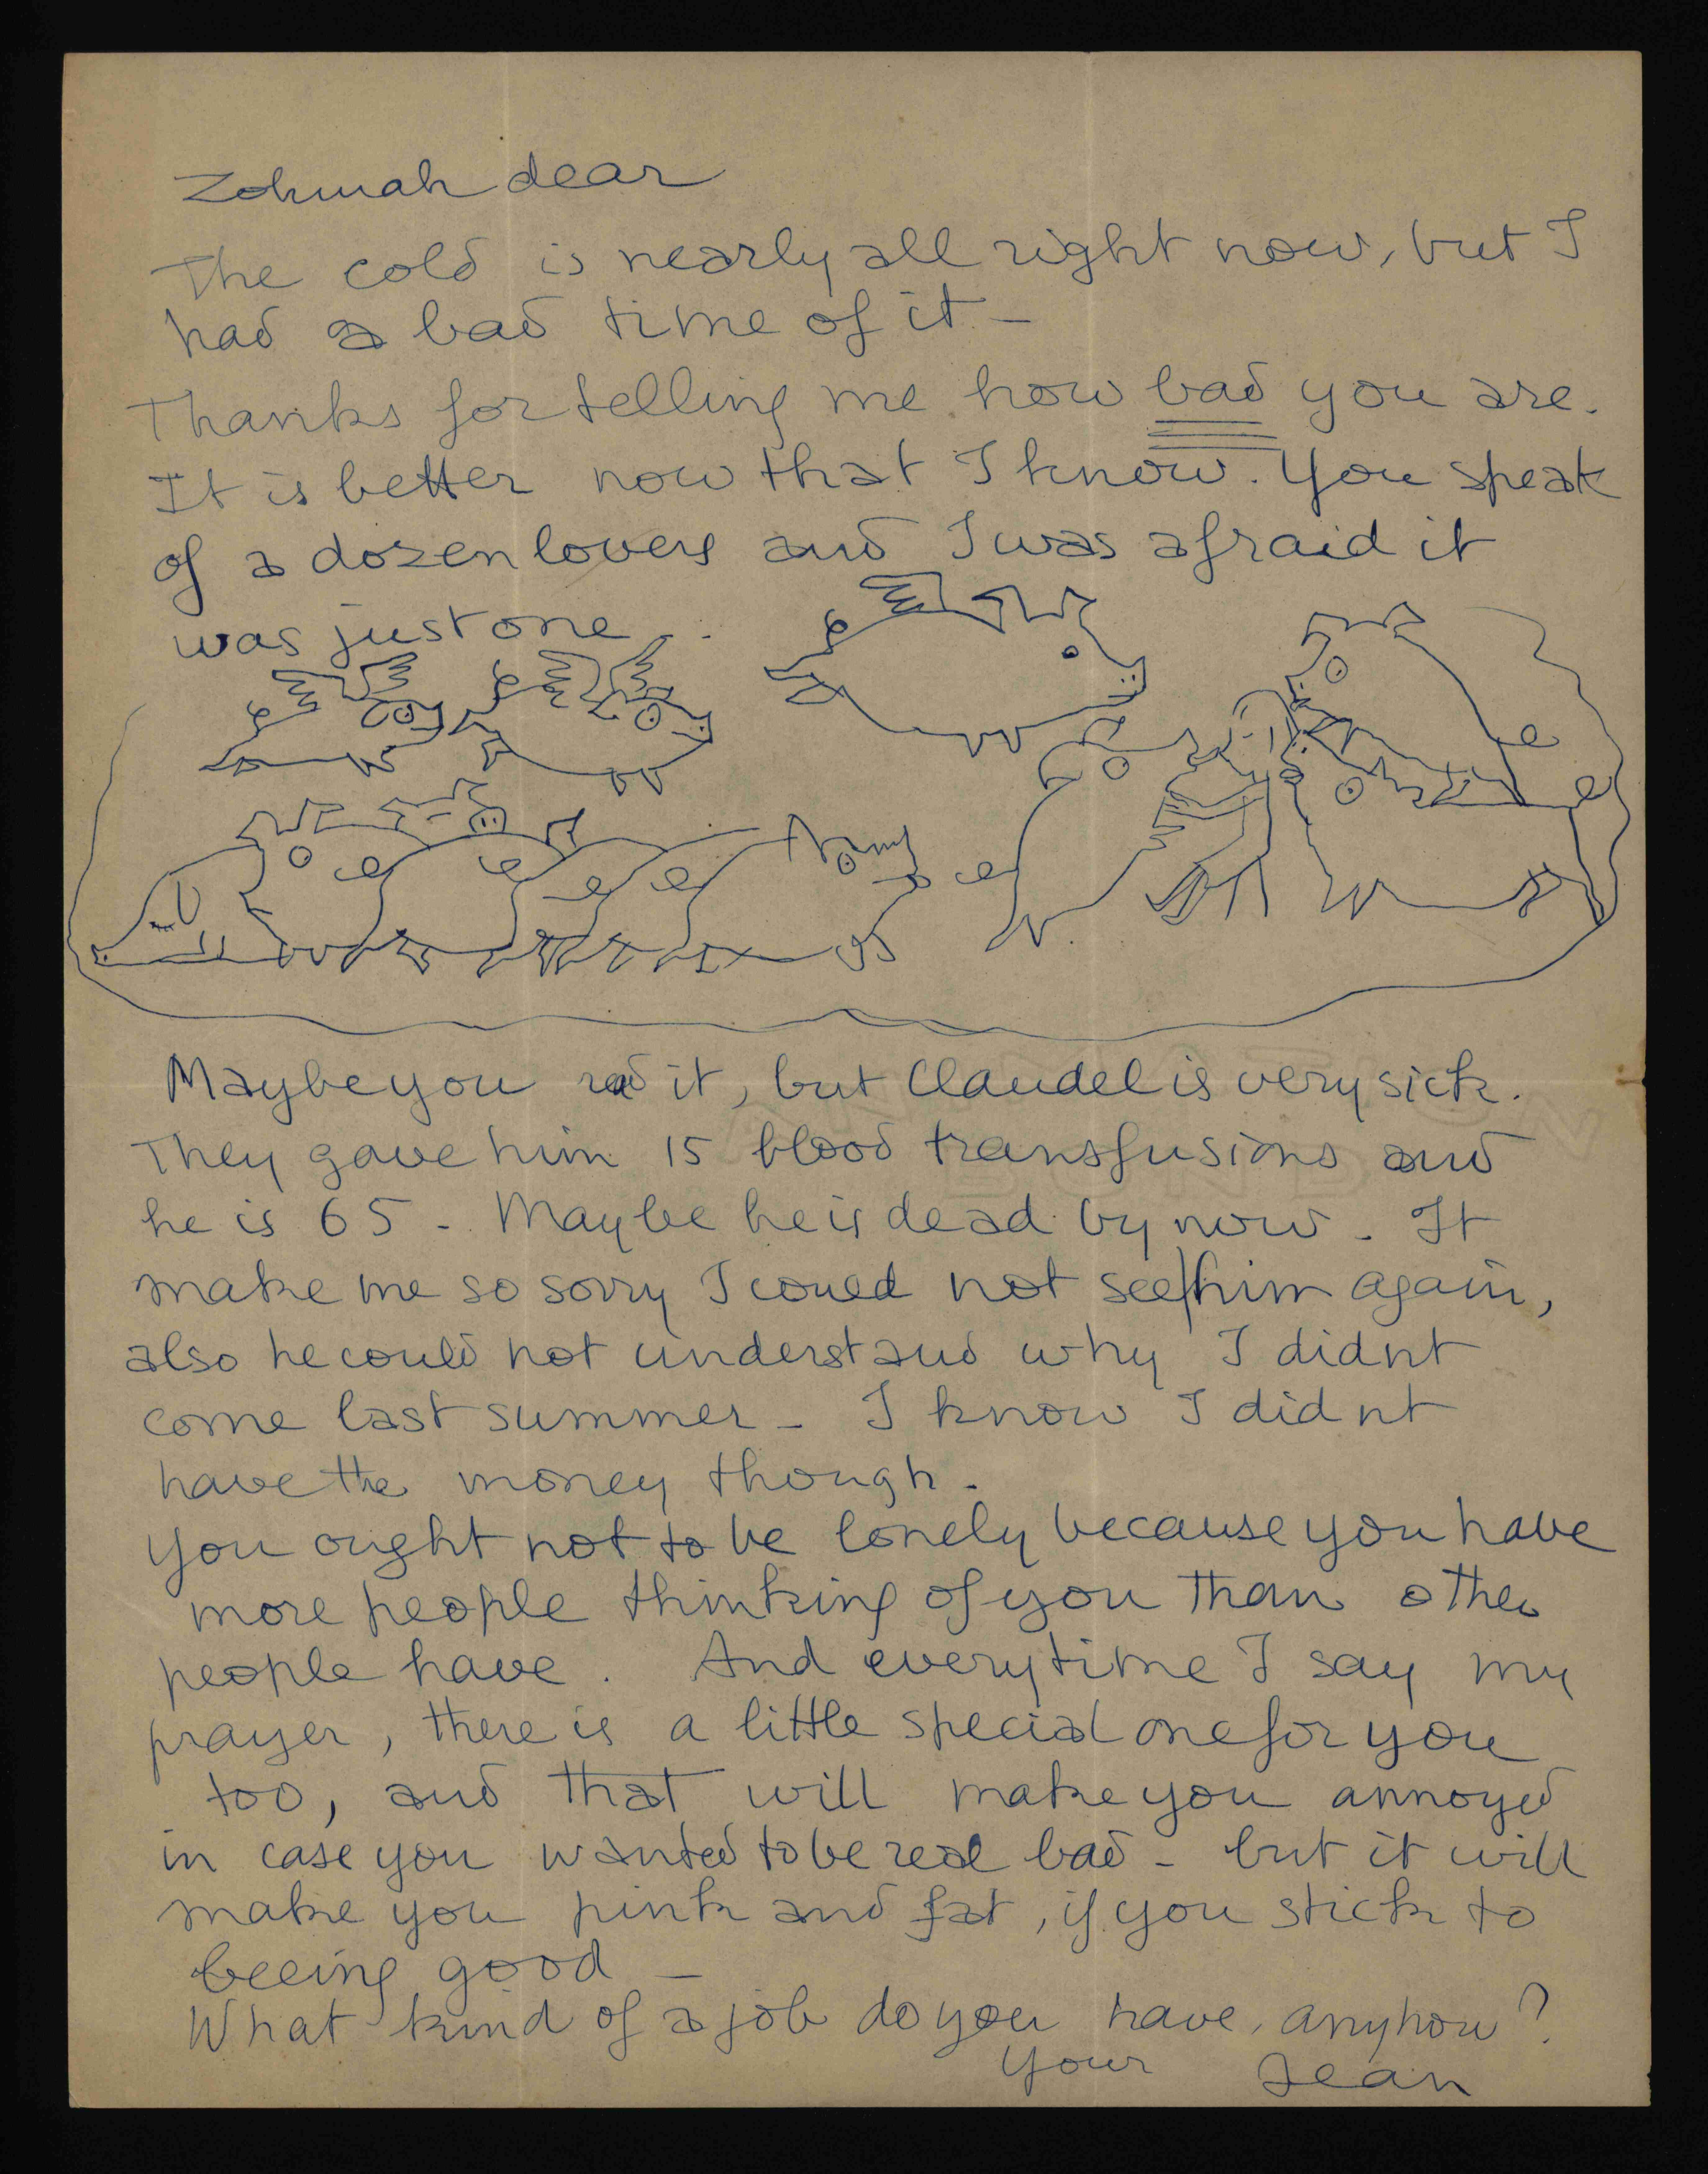 Zohmah dear
The cold is nearly all right now, but I
had a bad time of it -
Thanks for telling me how bad you are.
It is better now that I know. You speak
of a dozen lovers and I was afraid it
was just one..
Maybe you read it, but Claudel is very sick.
They gave him 15 blood transfusions and
he is 65 - Maybe he is dead by now. It
make me so sorry I could not see him again,
also he could not understand why I didnt
come last summer - I know I didnt
have the money though.
You ought not to be lonely because you have
more people thinking of you than other
people have. And everytime I say my
prayer, there is a little special one for you
too, and that will make you annoyed
in case you wanted to be real bad - but it will
make you pink and fat, if you stick to
beeing good -
What kind of a job do you have, anyhow?
Your Jean